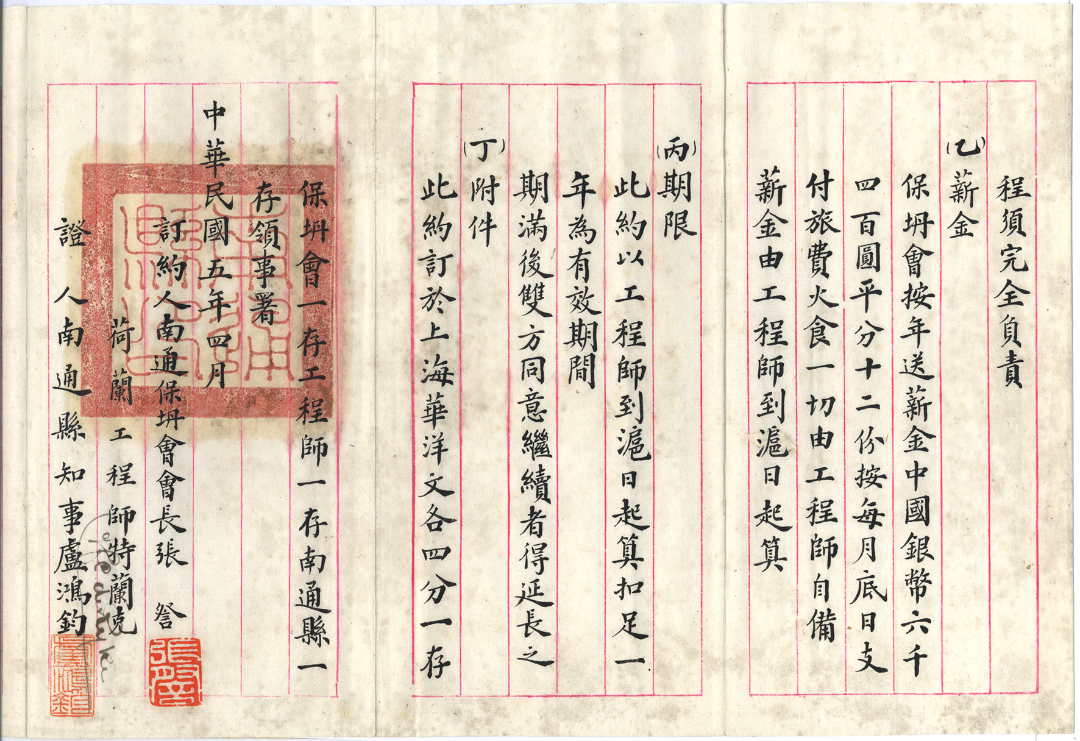 程須完全負責
(乙)薪金
保坍會按年送薪金中國銀幣六千
四百圓平分十二份按每月底日支
付旅費火食一切由工程師自備
薪金由工程師到滬日起算
(丙)期限
此約以工程師到滬日起算扣足一
年為有效期間
期滿後雙方同意繼續者得延長之
(丁)附件
此約訂於上海華洋文各四分一存
保坍會一存工程師一存南通縣一
存領事署
中華民國五年四月
訂約人南通保坍會會長張詧
荷蘭工程師特蘭克
證人南通縣知事盧鴻鈞